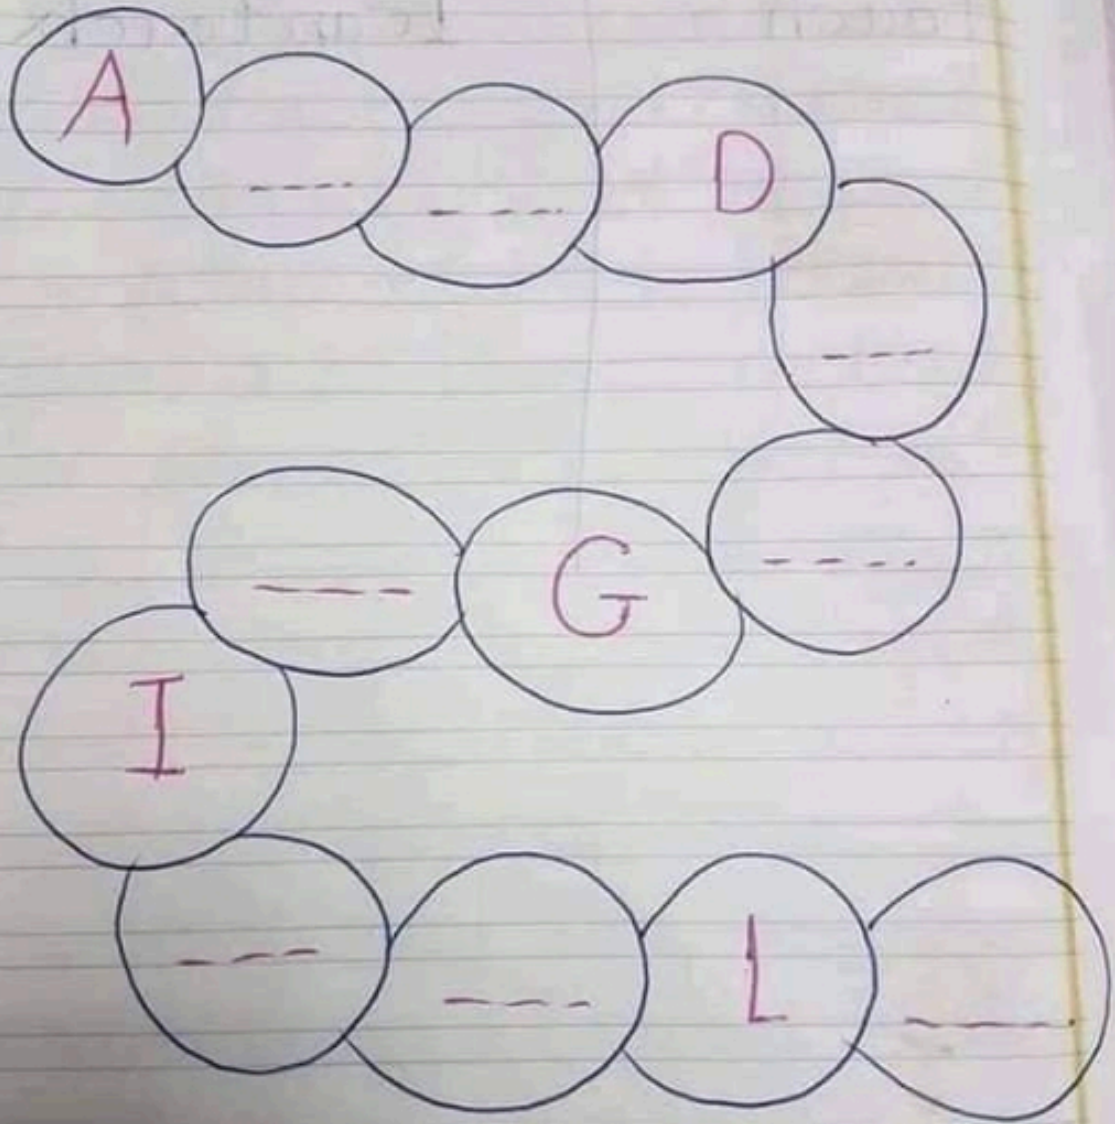 A ---- ---- D
---
---- G ----
I
--- ---- L ----